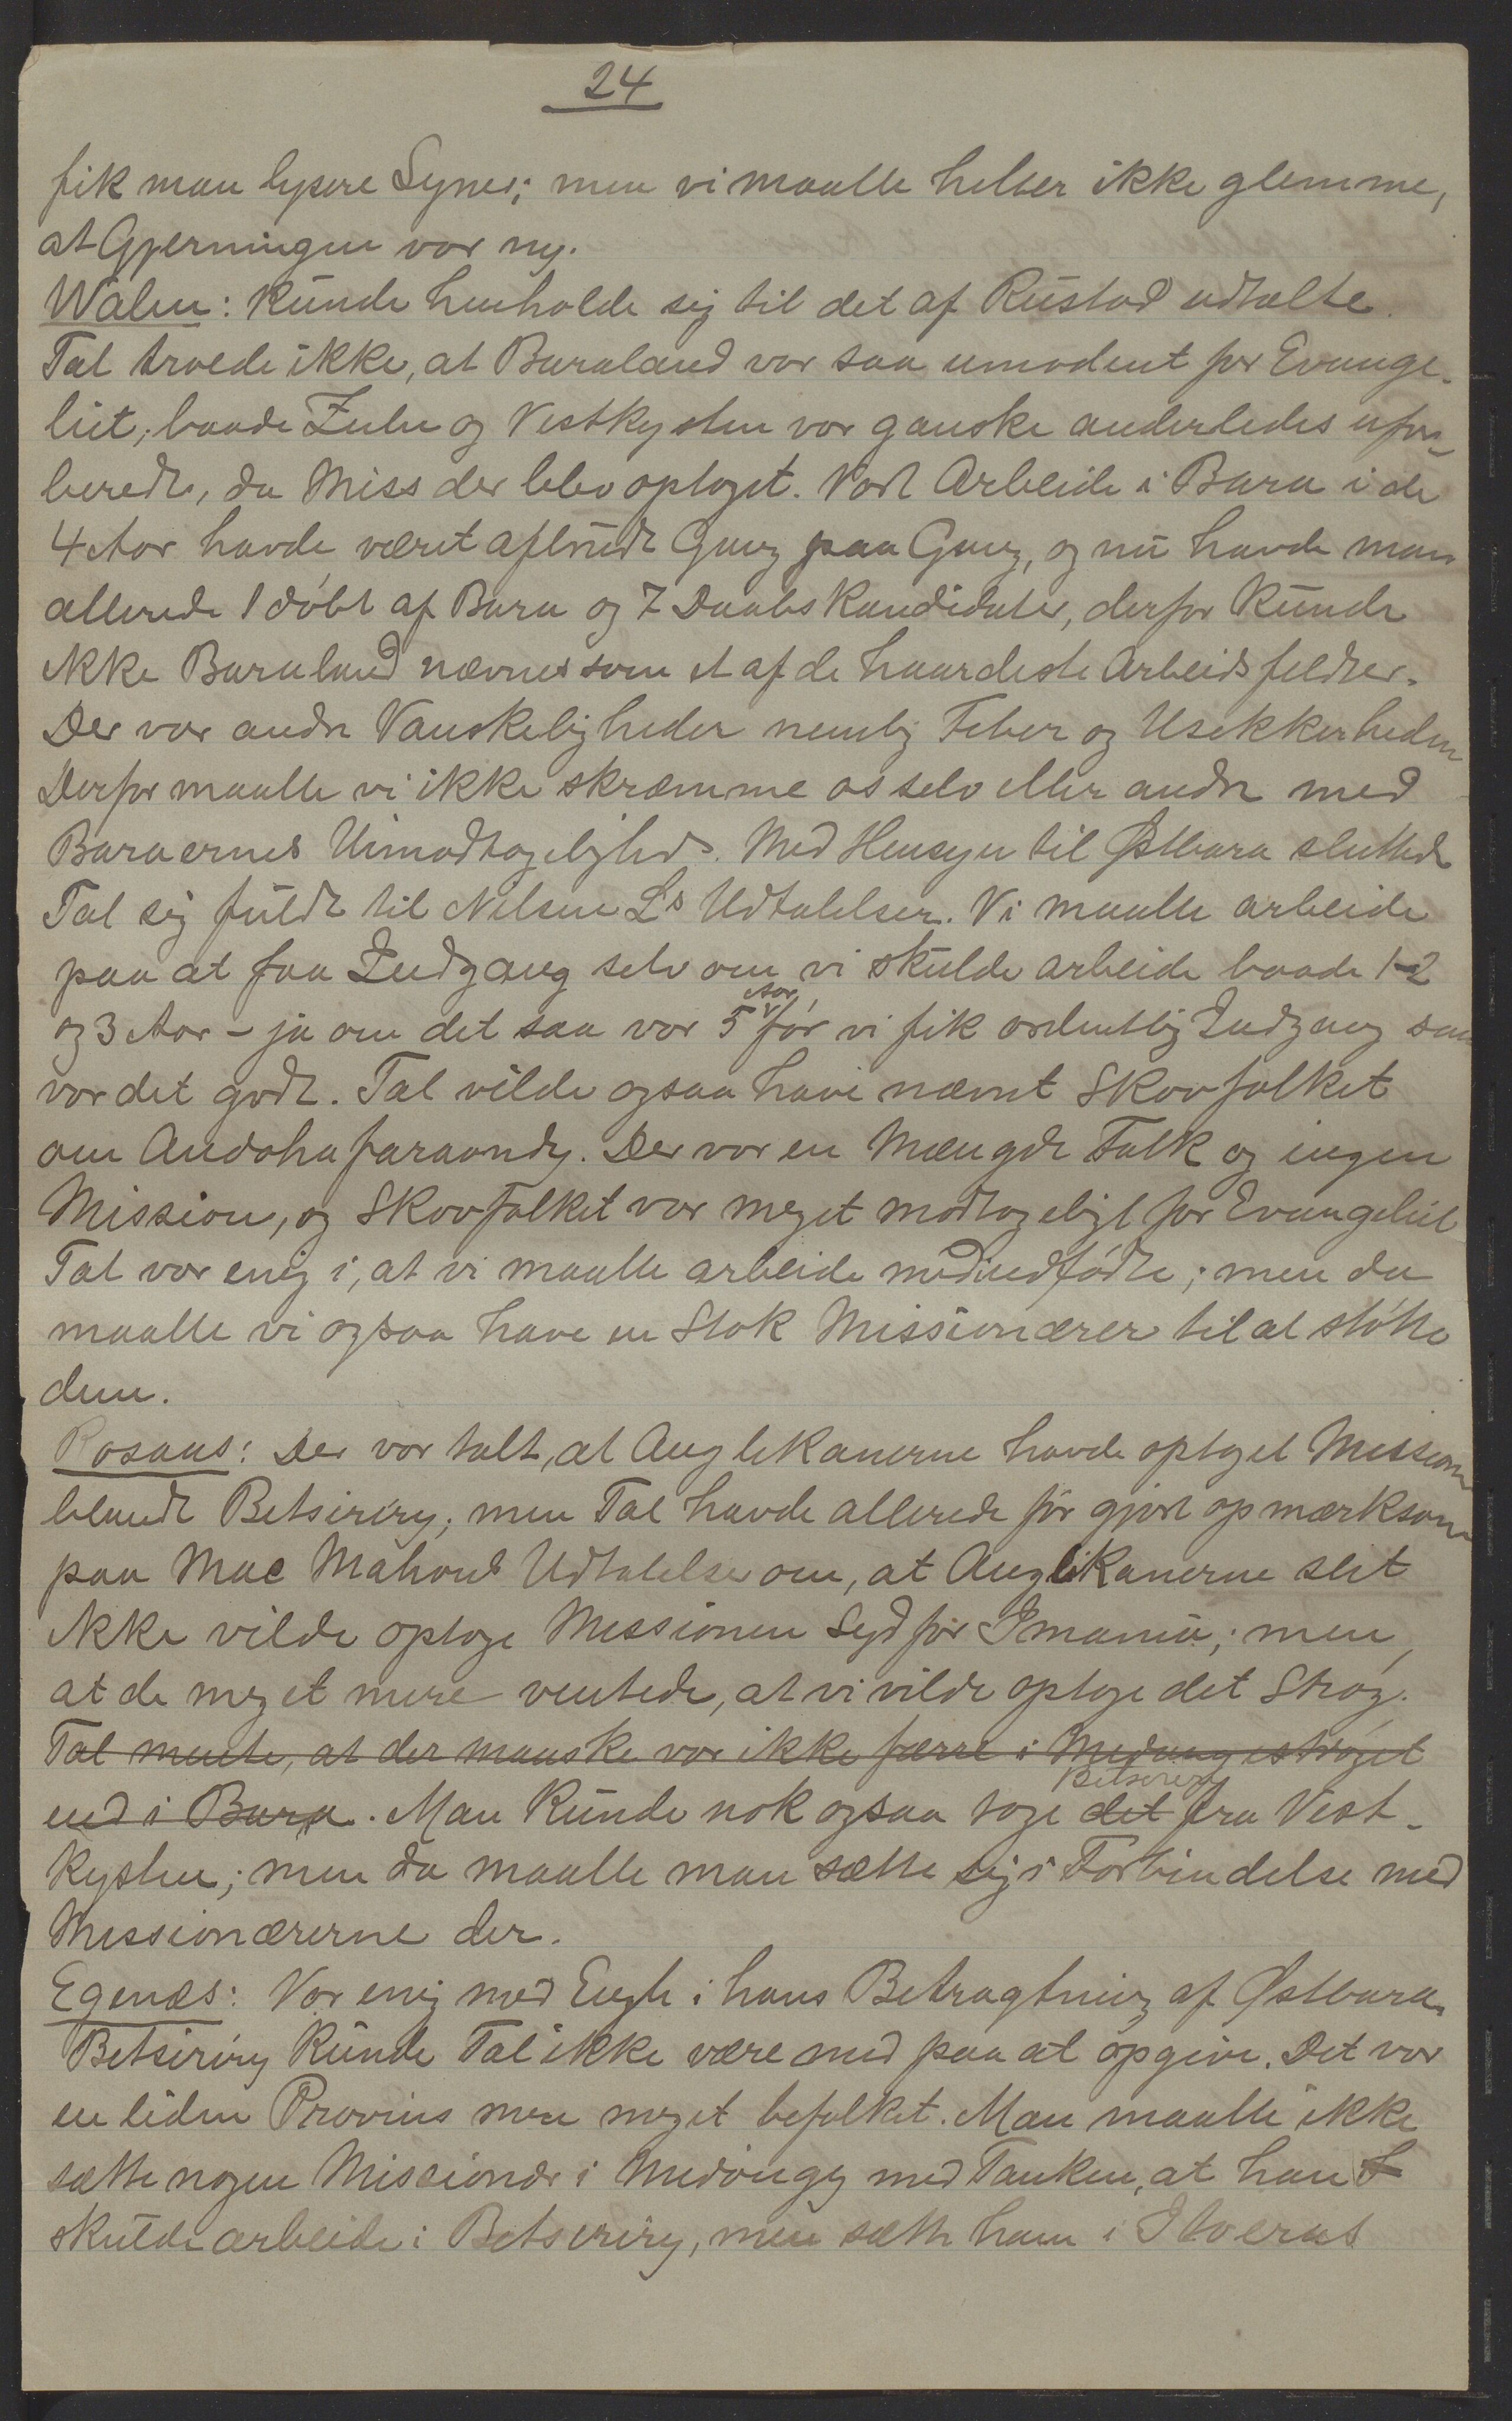 24
fik man lysere Syner; men vi maatte heller ikke glemme,
at Gjerningen var ny.
Walen: Kunde henholde sig til det af Rustad udtalte.
Tal troede ikke, at Baraland var saa umodent for Evange-
liet; baade Zulu og Vestkysten var ganske anderledes ufor-
beredt, da Miss der blev optaget. Vort Arbeide i Bara i de
4 Aar havde været afbrudt Gang paa Gang, og nu havde man
allerede 1 døbt af Bara og 7 Daabskandidater, derfor kunde
ikke Baraland nævnes som et af de haardeste Arbeidsfelter.
Der var andre Vanskeligheder nemlig Feber og Usekkerheden
Derfor maatte vi ikke skræmme os selv eller andre med
Baraernes Uimodtagelighed. Med Hensyn til Østbara sluttede
Tal sig fuldt til Nilsen Ls Udtalelser. Vi maatte arbeide
paa at faa Indgang selv om vi skulde arbeide baade 1-2
og 3 Aar - ja om det saa var 5 Aar før vi fik ordentlig Indgang saa
var det godt. Tal vilde ogsaa have nævnt Skovfolket
om Andohafaraondy. Der var en Mængde Folk og ingen
Mission, og Skovfolket var meget modtageligt for Evangeliet
Tal var enig i, at vi maatte arbeide med indfødte; men da
maatte vi ogsaa have en Stok Missionærer til at støtte
dem.
Rosaas: Der var talt, at Anglikanerne havde optaget Mission
blandt Betsiriry; men Tal havde allerede før gjort opmærksom
paa Mac Mahons Udtalelse om, at Anglikanerne slet
ikke vilde optage Missionen Syd for Imania; men,
at de meget mere ventede, at vi vilde optage det Strøg.
Tal mente, at der maaske var ikke færre i Midongestrøget
end i Bara. Man kunde nok ogsaa tage det Betsiriry fra Vest-
kysten; men da maatte man sætte sig i Forbindelse med
Missionærerne der.
Egenæs: Var enig med Engh i hans Betragtning af Østbara.
Betsiriry kunde Tal ikke være med paa at opgive. Det var
en liden Provins men meget befolket. Man maatte ikke
sætte nogen Missionær i Midongy med Tanken, at han
skulde arbeide i Betsiriry, men sætte ham i